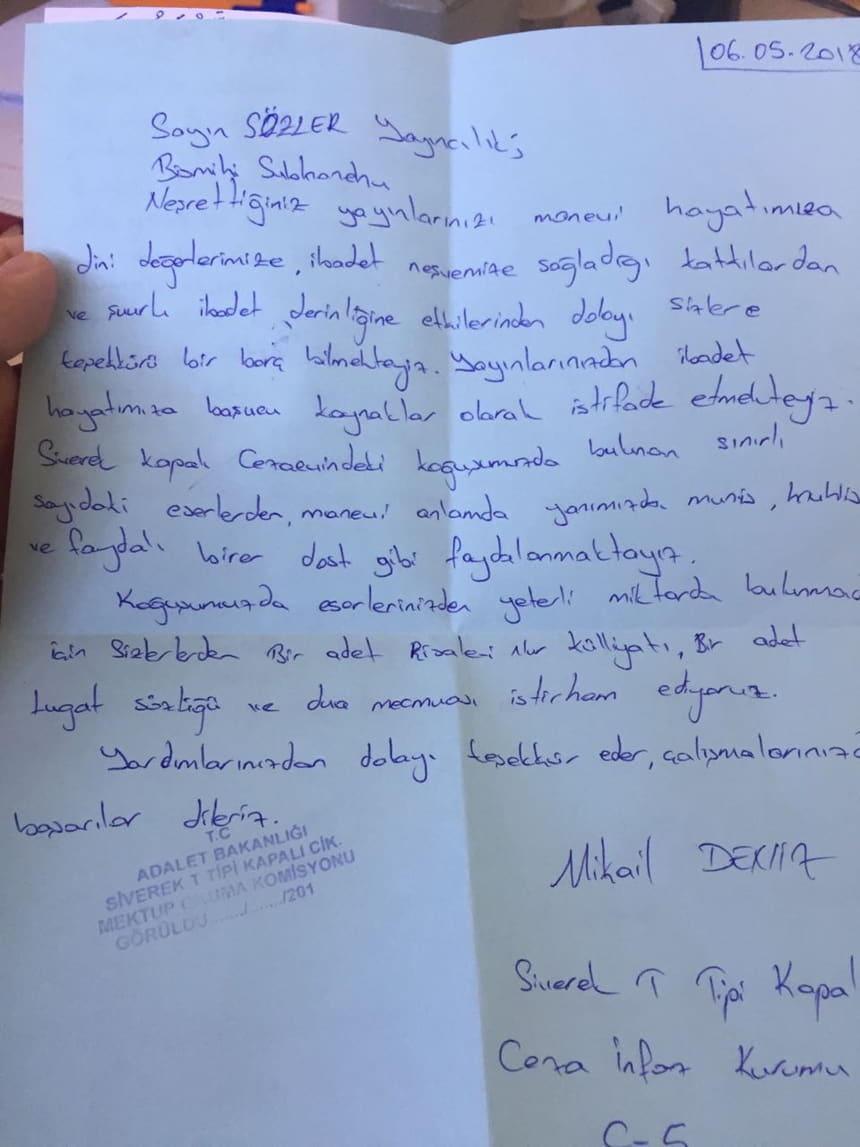 06.05.2018
Sayın SÖZLER Yayıncılık;
Bismihi Subhanehu
Neşrettiğiniz yayınlarınızı manevi hayatımıza
dini değerlerimize, ibadet neşvemize sağladığı tattılardan
ve şuurlı ibadet derinliğine etkilerinden dolayı sizlere
teşekkürü bir borç bilmekteyiz. Yayınlarınızdan ibadet
hayatımıza başucu kaynaklar olarak istifade etmekteyiz.
Siverek kapalı Cezaevindeki koğuşumuzda bulunan sınırlı
sayıdaki eserlerden, manevi anlamda yanımızda munis, muhlis
ve faydalı birer dost gibi faydalanmaktayız.
Koğuşumuzda eserlerinizden yeterli miktarda bulunmad
için Sizlerlerden Bir adet Risalei nur külliyatı, Bir adet
Lugat sözlüğü ve dua mecmuası istirham ediyoruz.
Yardımlarınızdan dolayı teşekkür eder, çalışmalarınızd
başarılar dileriz.
T.C
ADALET BAKANLIĞI
SİVEREK T TİPİ KAPALI CİK.
MEKTUP OKUMA KOMİSYONU
GÖRÜLDÜ ....../....../201
Mikail DENİZ
Siverek T Tipi Kapal
Ceza İnfaz Kurumu
C-5